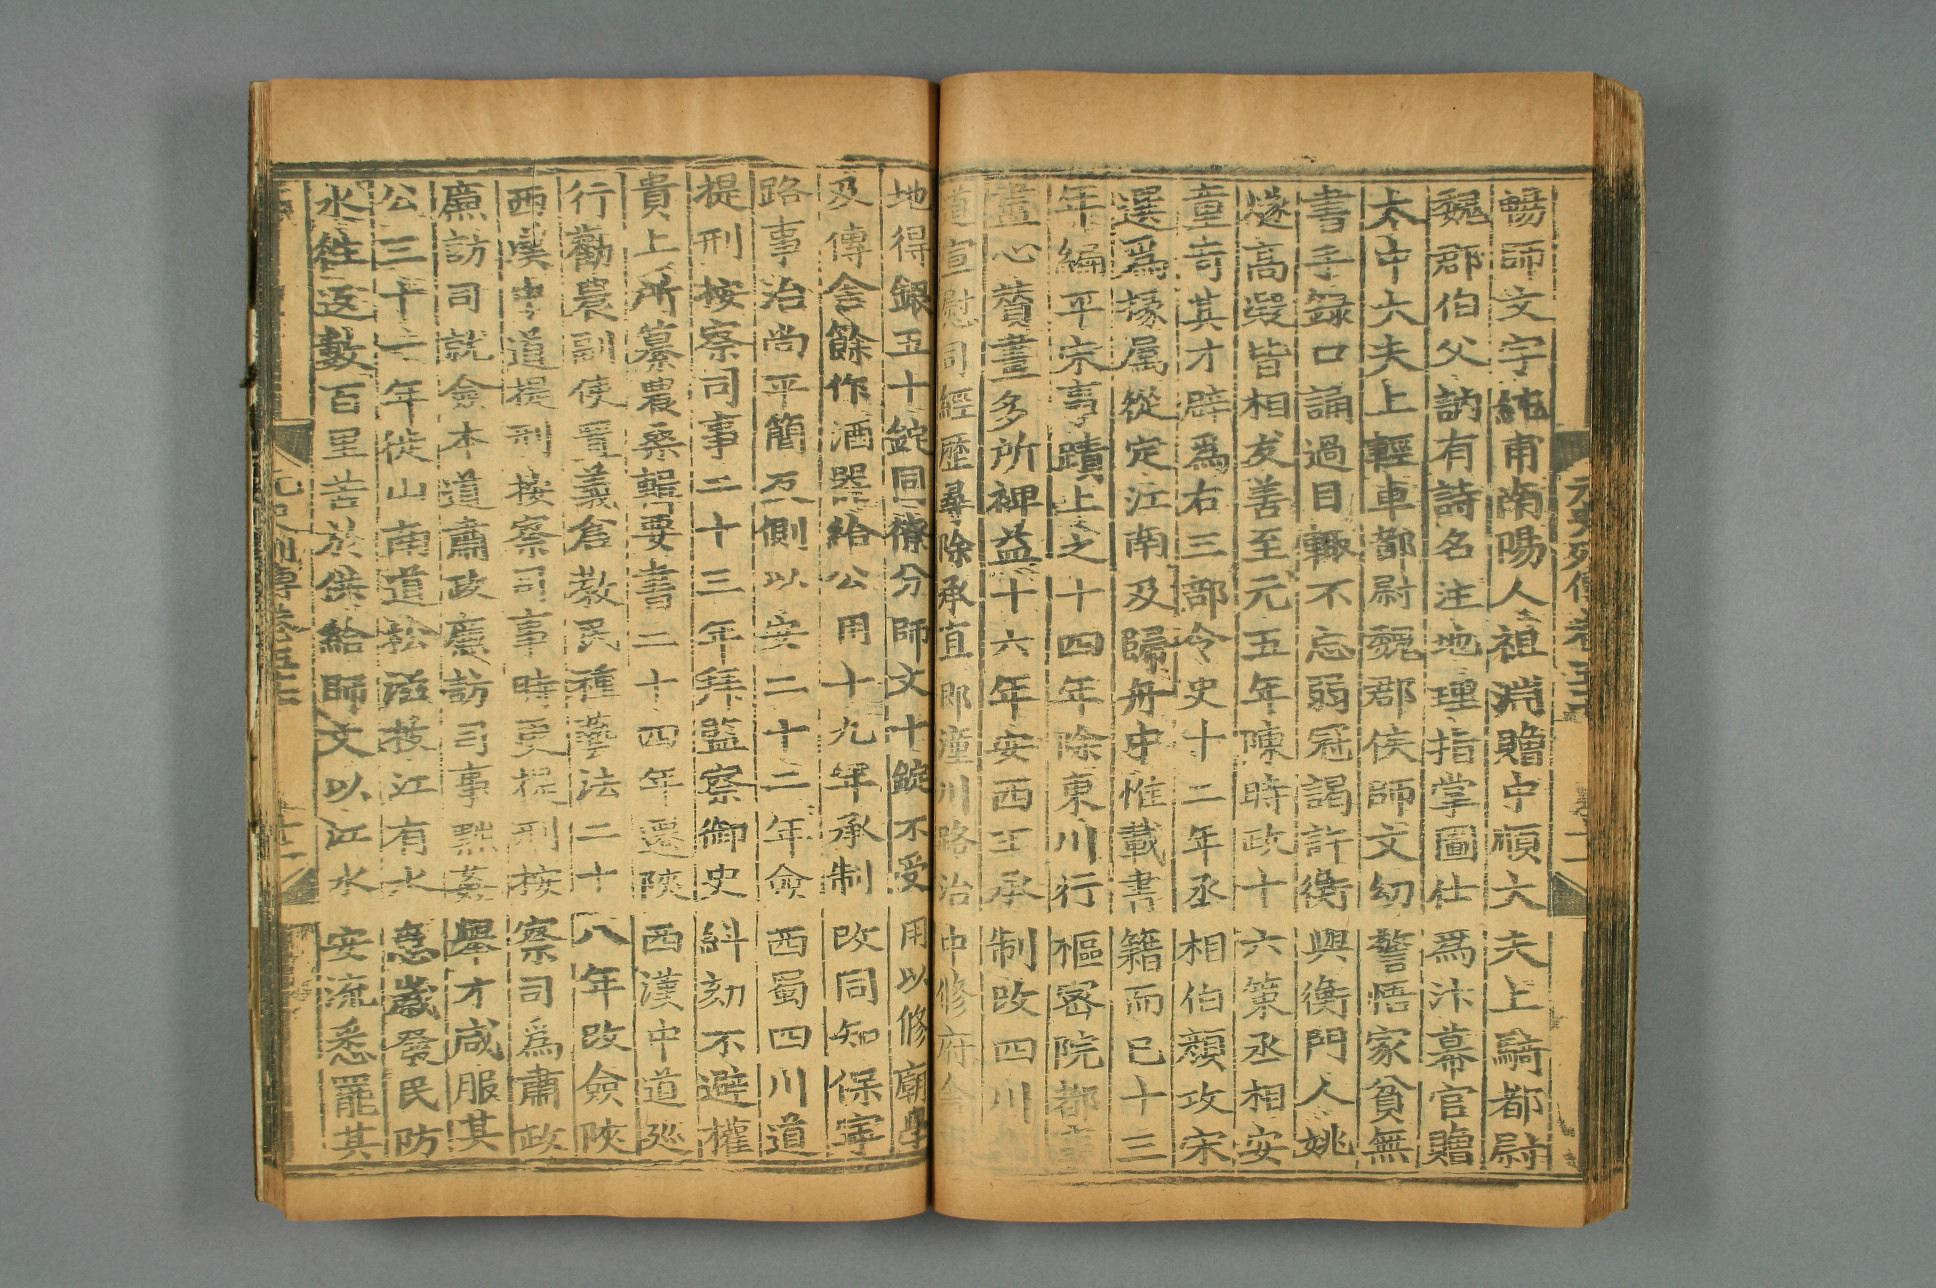 元史列傳卷五十七
暢師文字純甫南陽人祖淵贈中順大夫上騎都尉
魏郡伯父訥有詩名注地理指掌圖仕爲汴幕官贈
太中大夫上輕車都尉魏郡侯師文幼警悟家貧無
書手錄口誦過目輒不忘弱冠謁許衡與衡門人姚
燧高凝皆相友善至元五年陳時政十六策丞相安
童奇其才辟爲右三部令史十二年丞相伯顏攻宋
選爲掾屬從定江南及歸舟中惟載書籍而已十三
年編平宋事蹟上之十四年除東川行樞密院都事
盡心贊畫多所裨益十六年安西王承制改四川
道宣慰司經歷尋除承直郎潼川路治中修府舍
地得銀五十錠同僚分師文十錠不受用以修廟學
及傳舍餘作酒器給公用十九年承制改同知保寧
路事治尚平簡反側以安二十二年僉西蜀四川道
提刑按察司事二十三年拜監察御史糾劾不避權
貴上所纂農桑輯要書二十四年遷陝西漢中道巡
行勸農副使置義倉教民種藝法二十八年改僉陝
西漢中道提刑按察司事時更提刑按察司爲肅政
廉訪司就僉本道肅政廉訪司事黜姦舉才咸服其
公三十一年徙山南道松滋枝江有水患歲發民防
水往返數百里苦於供給師文以江水安流悉罷其
元史列傳卷五十七